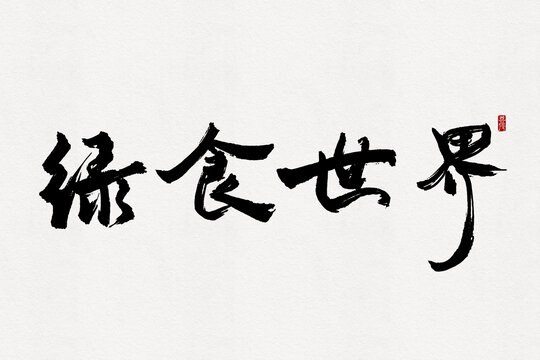 绿食世界